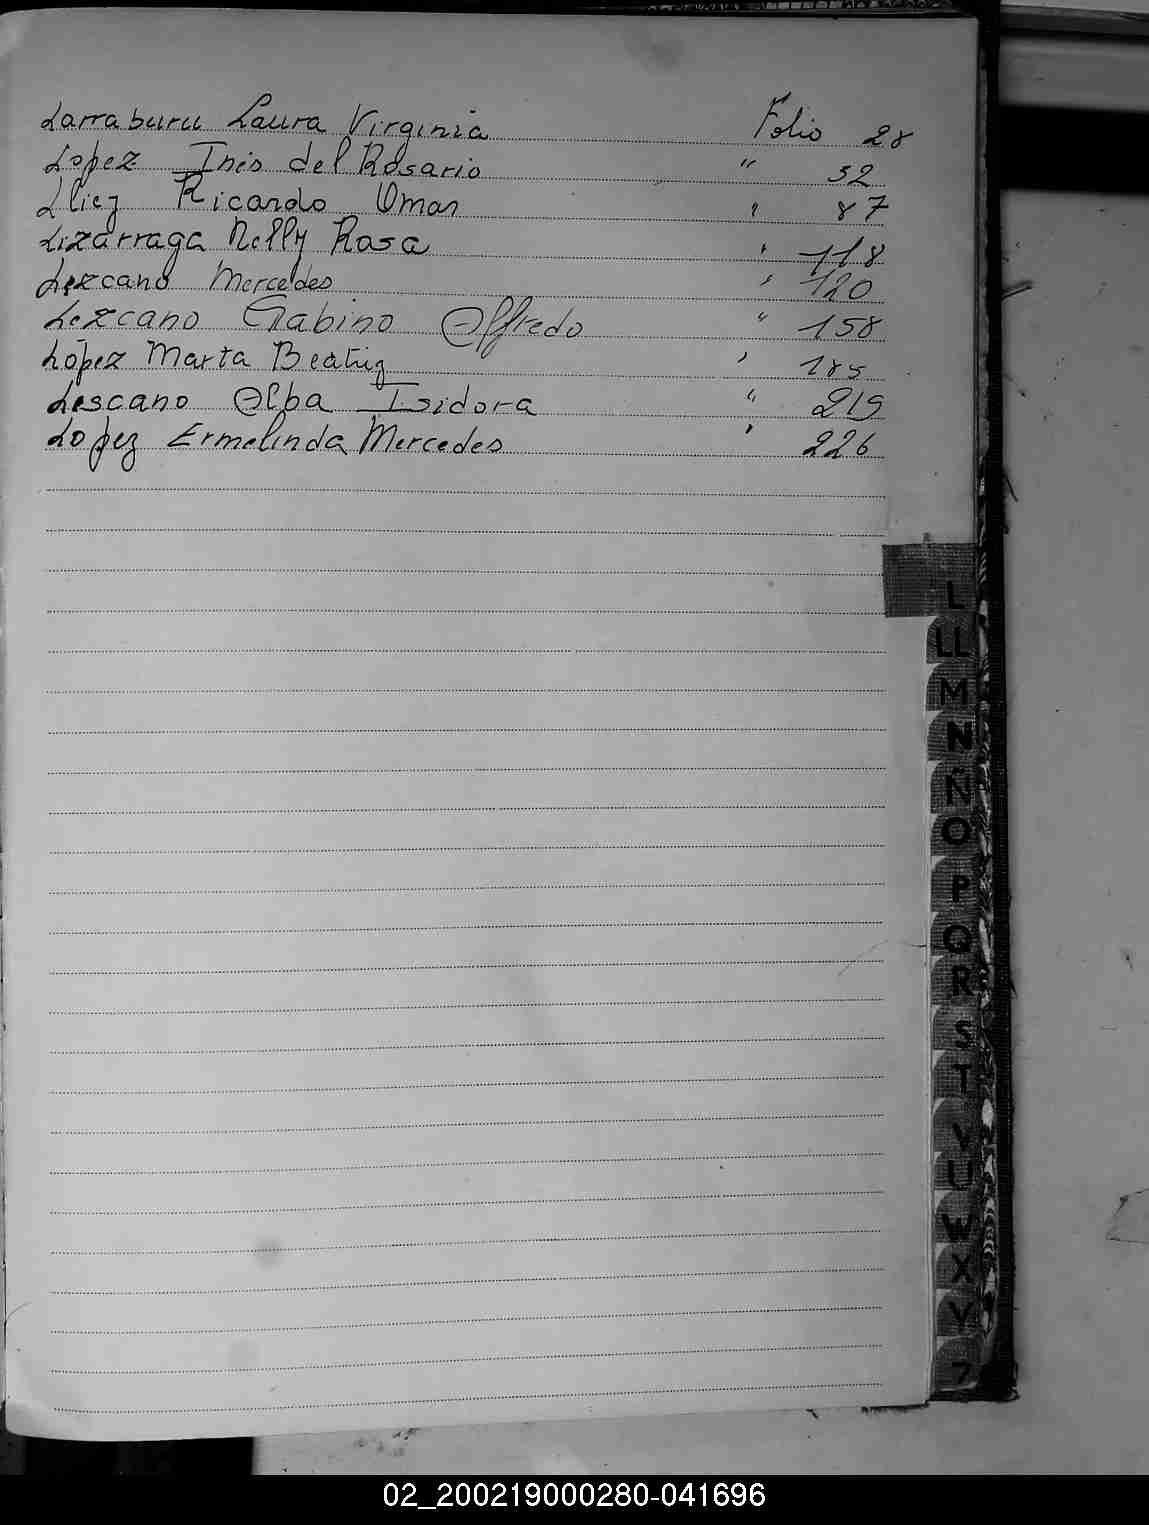 Larraburu Laura Virginia Folio 28
Lopez Inés del Rosario " 52
Ricardo Omar " 87
Lizarraga Nelly Rosa " 118
Lezcano Mercedes " 120
Lezcano Gabino Alfredo " 158
López Marta Beatriz " 185
Lescano Elba Isidora " 219
Lopez Ermelinda Mercedes " 226
L
LL
M
N
Ñ
O
P
Q
R
S
T
V
U
W
X
Y
Z
02_200219000280-041696